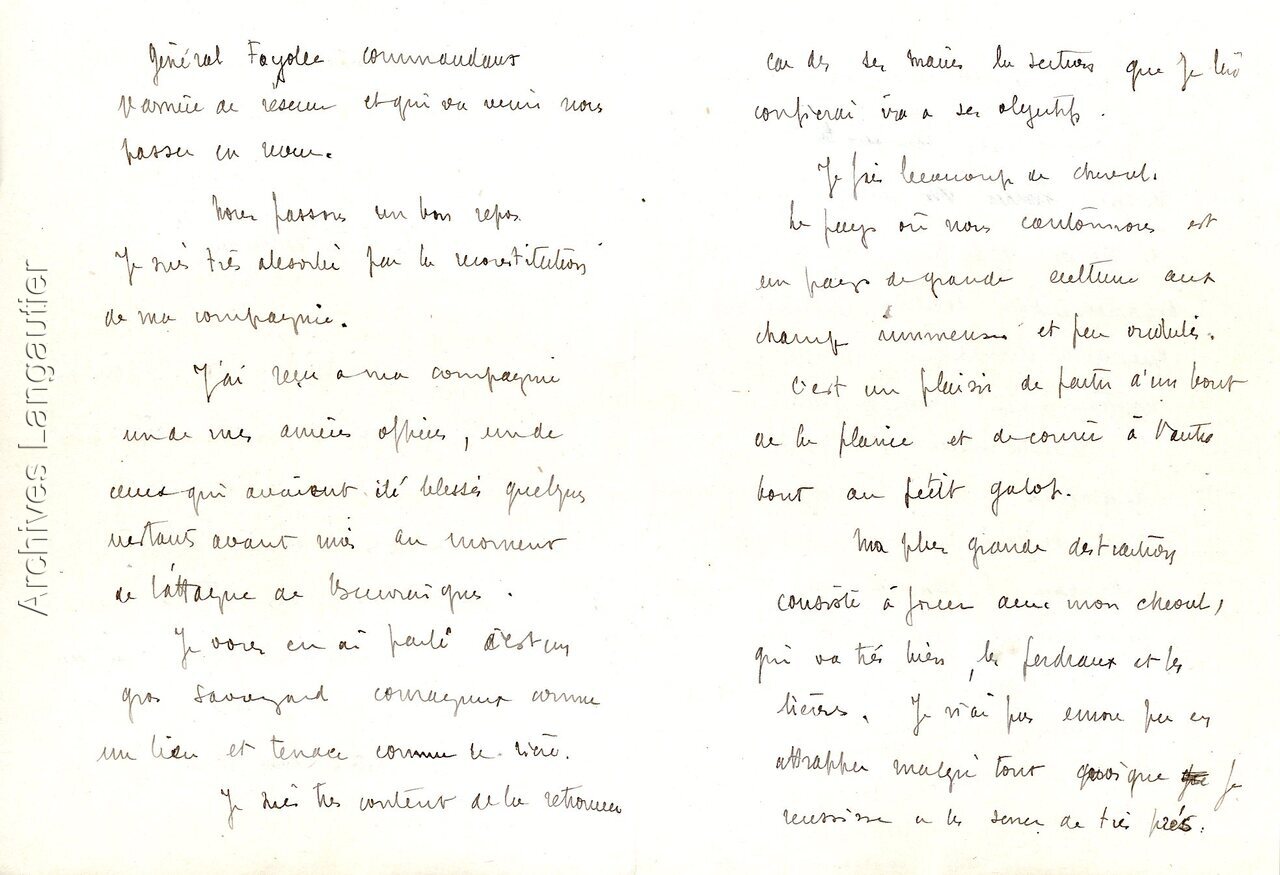 Général Fayolle commandant
l'armée de réserve et qui va venir nous
passer en revue.
Nous passons un bon repos.
Je suis très absorbé par la reconstitution
de ma compagnie.
J'ai reçu a ma compagnie
un de mes anciens officiers, un de
ceux qui avaient été blessés quelques
instants avant moi au moment
de l'attaque de Beuvraignes.
Je vous en ai parlé c'est un
gros savoyard courageux comme
un lion et tenace comme
Je suis très content de le retrouver
Archives Langautier
car des ses mains la section que je lui
confierai ira a ses objectifs.
Je fais beaucoup de cheval.
Le pays où nous cantonnons est
un pays de grande culture aux
champs immenses et peu ondulés.
C'est un plaisir de partir d'un bout
de la plaine et de courir à l'autre
bout au petit galop.
Ma plus grande distraction
consiste à forcer avec mon cheval,
qui va très bien, les perdreaux et les
lièvres. Je n'ai pas encore pu en
attraper malgré tout quoique je
reussisse a les serrer de très près.